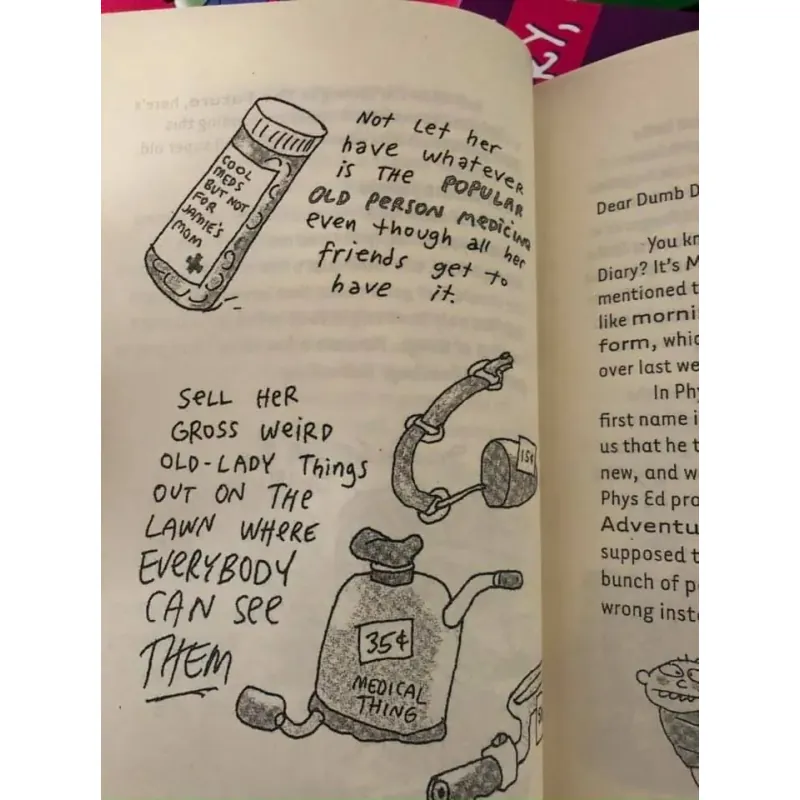 COOL
MEDS
BUT NOT
FOR
JAMIE'S
MOM
Not Let her
have whatever
is THE POPULAR
OLD PERSON MEDICINE
even though all her
friends get to
have it.
SELL HER
GROSS WEIRD
OLD-LADY Things
OUT ON THE
LAWN WHERE
EVERYBODY
CAN SEE
THEM
15¢
35¢
MEDICAL
THING
Dear Dumb D
You kn
Diary? It's M
mentioned t
like morni
form, whic
over last we
In Phy
first name i
us that he t
new, and w
Phys Ed pro
Adventu
supposed t
bunch of p
wrong inst